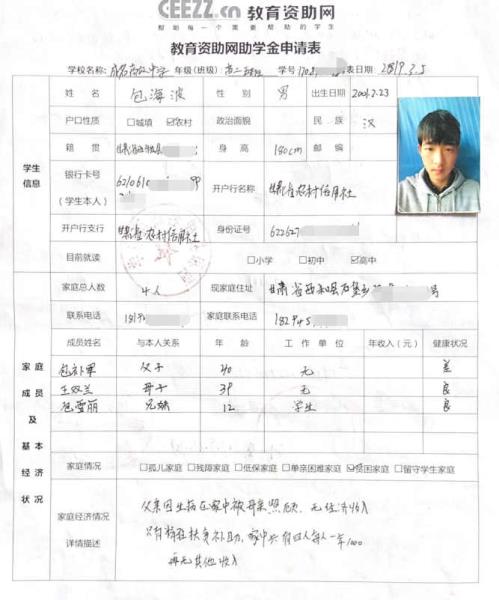 CEEZZ.cn 教育资助网
帮助每一个需要帮助的学生
教育资助网助学金申请表
学校名称: 年级(班级): 高二 学号 表日期: 2019.3.5
学生信息
姓名 包海波 性别 男 出生日期 2001.2.23
户口性质 □城镇 ☑农村 政治面貌 民族 汉
籍贯 身高 180cm 邮编
银行卡号(学生本人) 621061 99 开户行名称 农村信用社
开户行支行 农村信用社 身份证号 622627
目前就读 □小学 □初中 ☑高中
家庭成员及基本经济状况
家庭总人数 4人 现家庭住址 甘肃省西和县石堡乡 号
联系电话 1819 家庭联系电话 182945
成员姓名 与本人关系 年龄 工作单位 年收入(元) 健康状况
父子 40 无 差
王双兰 母子 39 无 良
包雪丽 兄妹 12 学生 良
家庭情况 □孤儿家庭 □残障家庭 □低保家庭 □单亲困难家庭 ☑贫困家庭 □留守学生家庭
家庭经济情况详情描述
父亲因生病在家中被母亲照顾, 无经济收入
只有 扶贫补助, 家中共有四人每人一年1000
再无其他收入